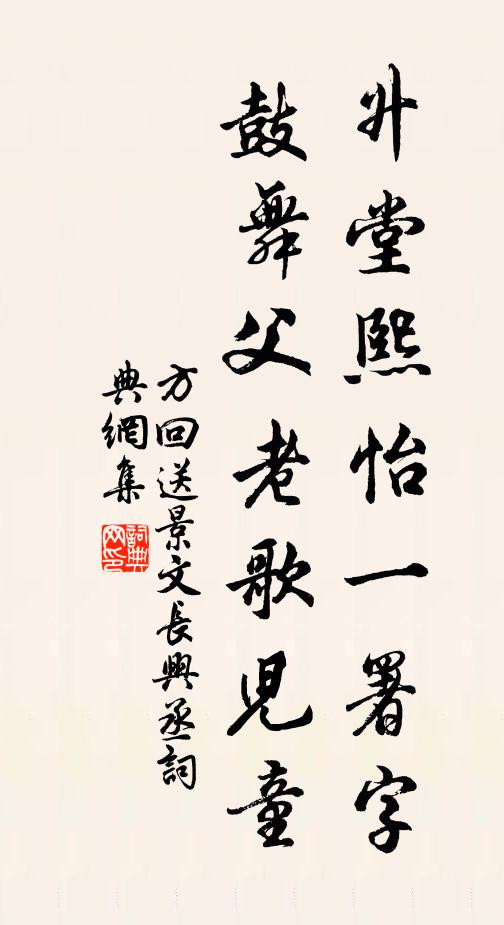 升堂熙怡一署字
鼓舞父老歌兒童
方回送景文長興丞詞
典網集
詞典
网印